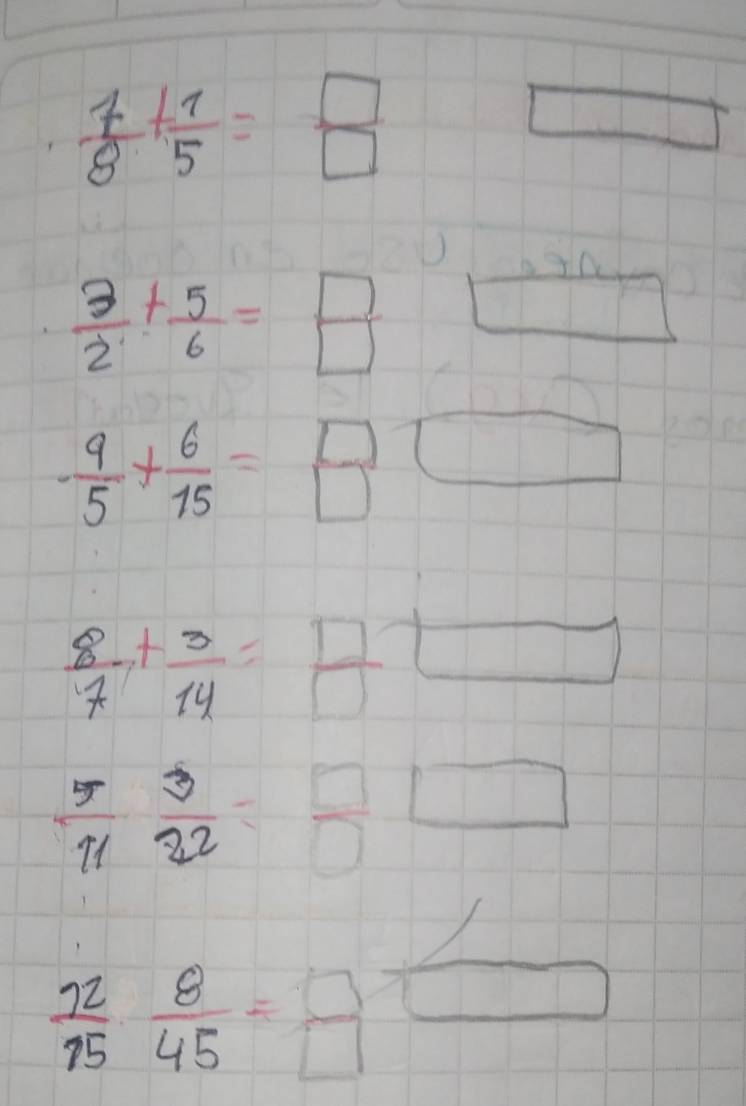 7/8 + 1/5 =
3/2 + 5/6 =
9/5 + 6/15 =
8/7 + 3/14 =
5/11 3/22 =
12/15 8/45 =